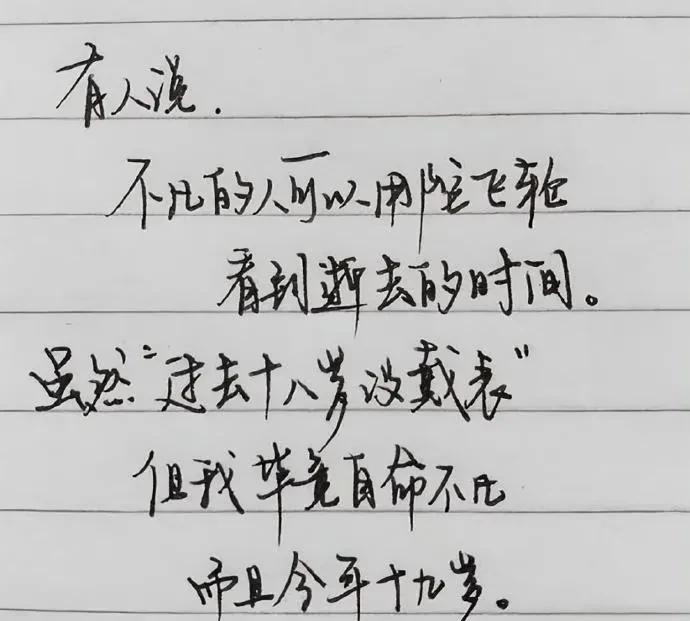 有人说.
不凡的人可以用陀飞轮
看到逝去的时间。
虽然“过去十八岁没戴表”
但我毕竟自命不凡
而且今年十九岁。